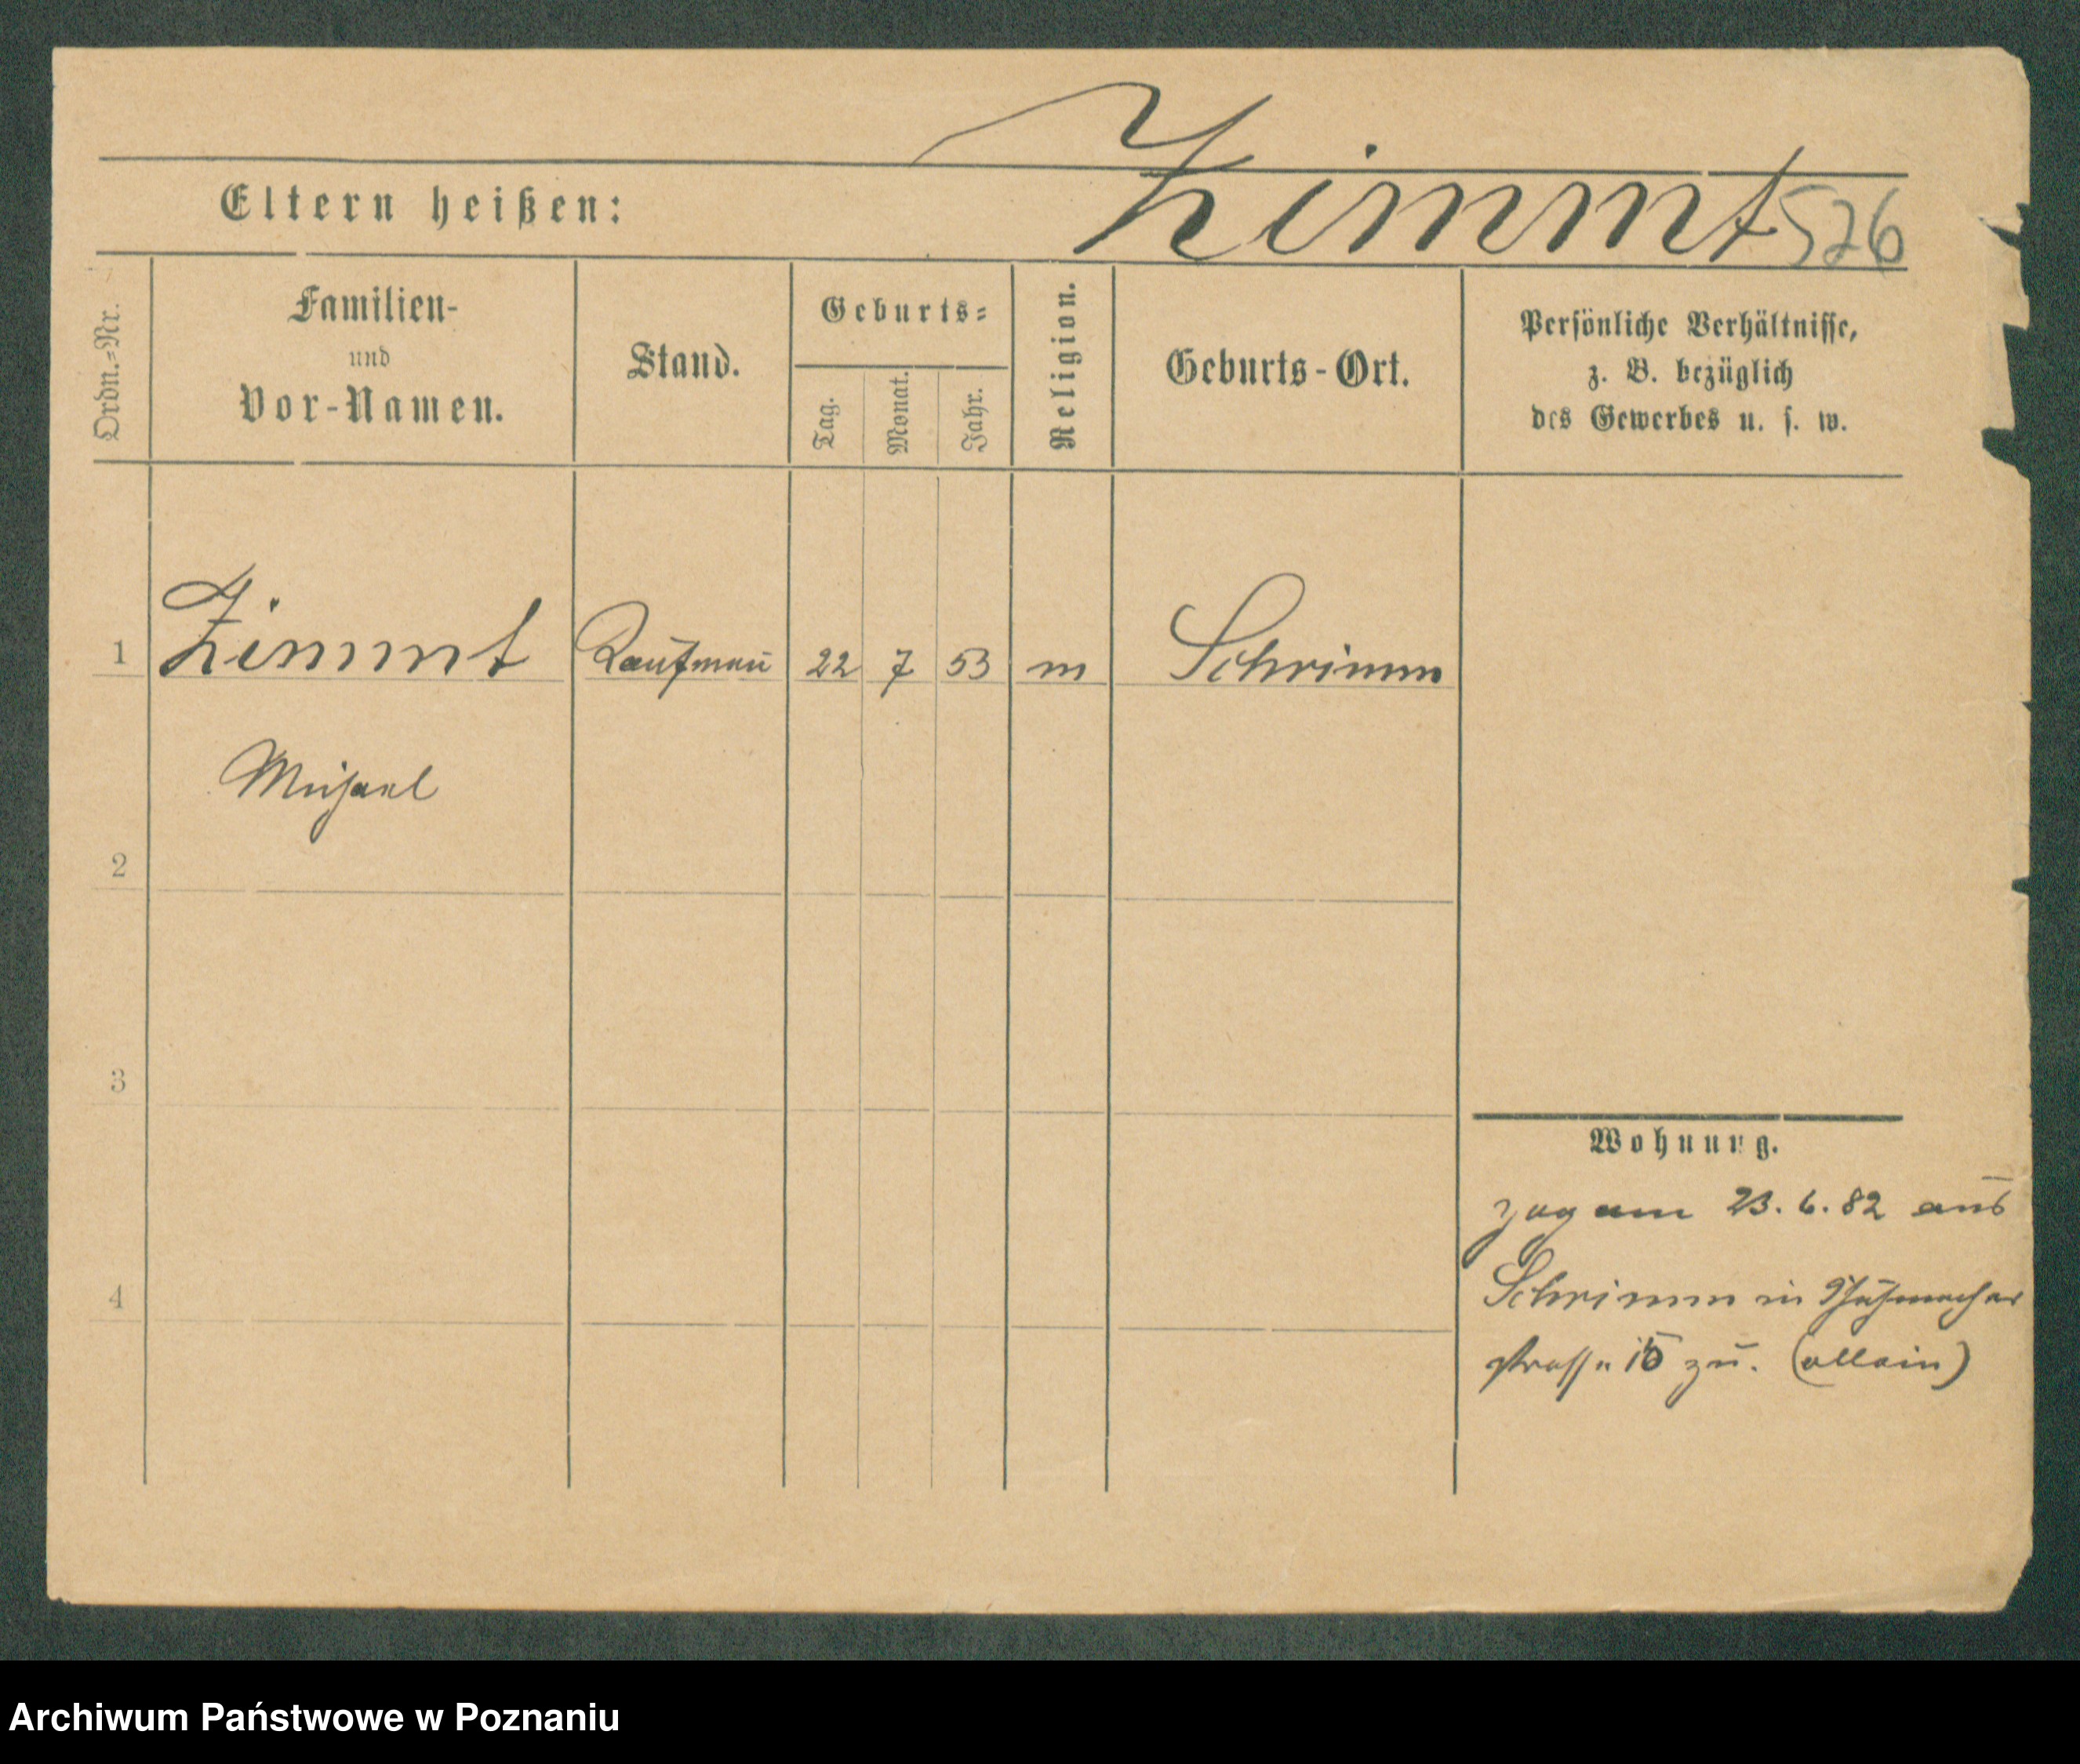 Zimmt 526
Eltern heißen:
Ordn.=Nr.
Familien-
und
Vor-Namen.
Stand.
Geburts=
Tag.
Monat.
Jahr.
Religion.
Geburts-Ort.
Persönliche Verhältnisse,
z. B. bezüglich
des Gewerbes u. s. w.
1 Zimmt Kaufman̄ 22 7 53 m Schrimm
Michael
2
3
4
Wohnung.
zog am 23. 6. 82 aus
Schrimm in Schuhmacher
strasse 15 zu. (allein)
Archiwum Państwowe w Poznaniu